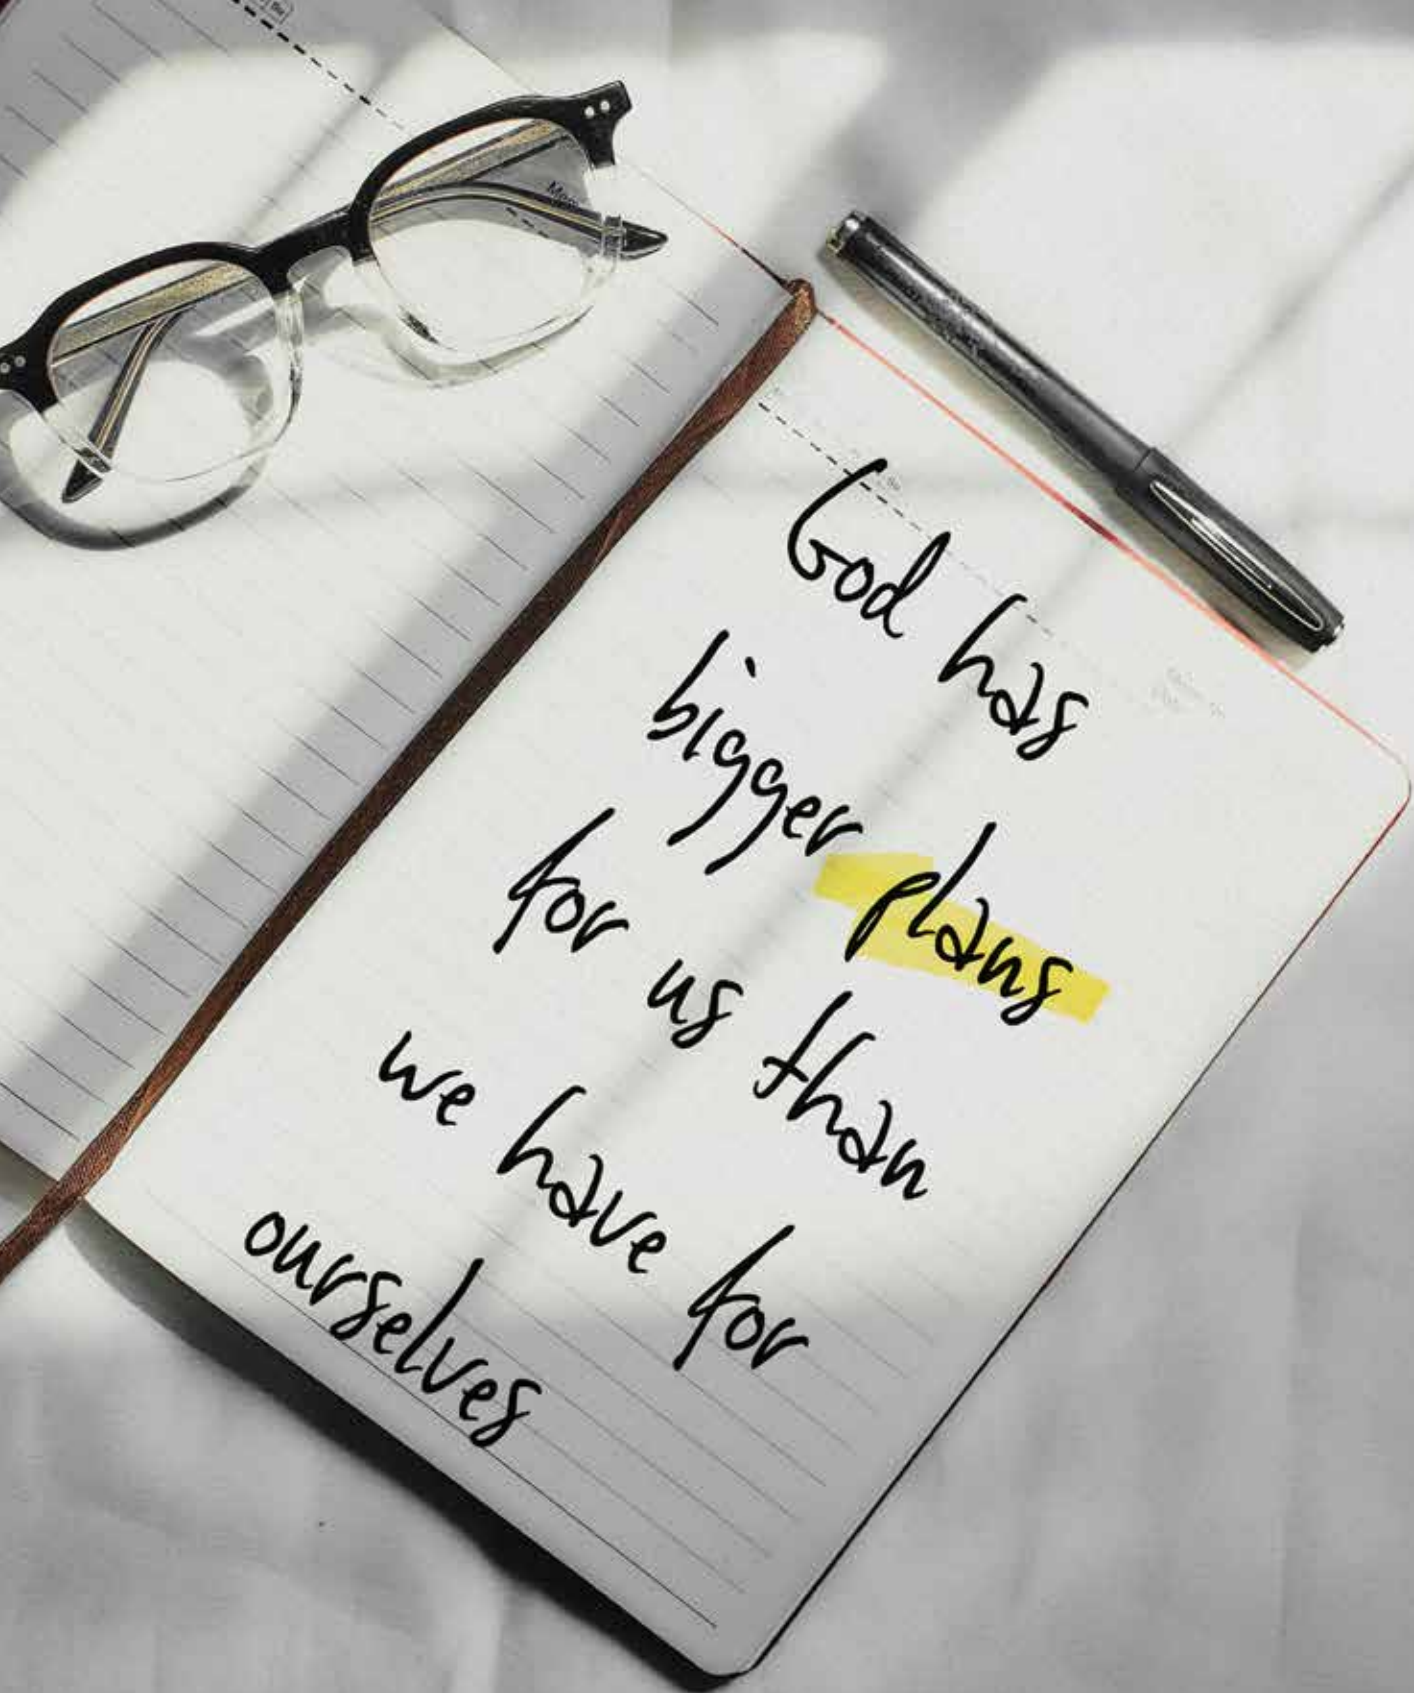 God has
bigger plans
for us than
we have for
ourselves